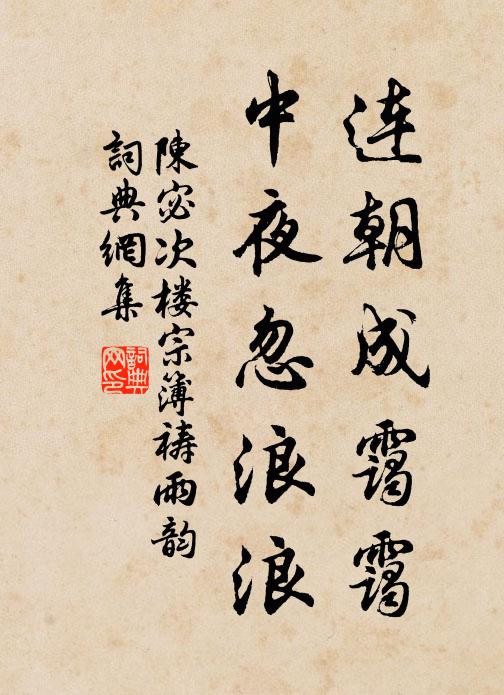 连朝成霭霭
中夜忽浪浪
陳宓次楼宗簿禱雨韵
詞典網集
詞典网印